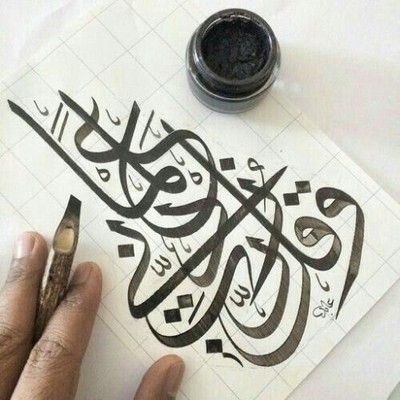 وقل رّبّ زدني علمًا